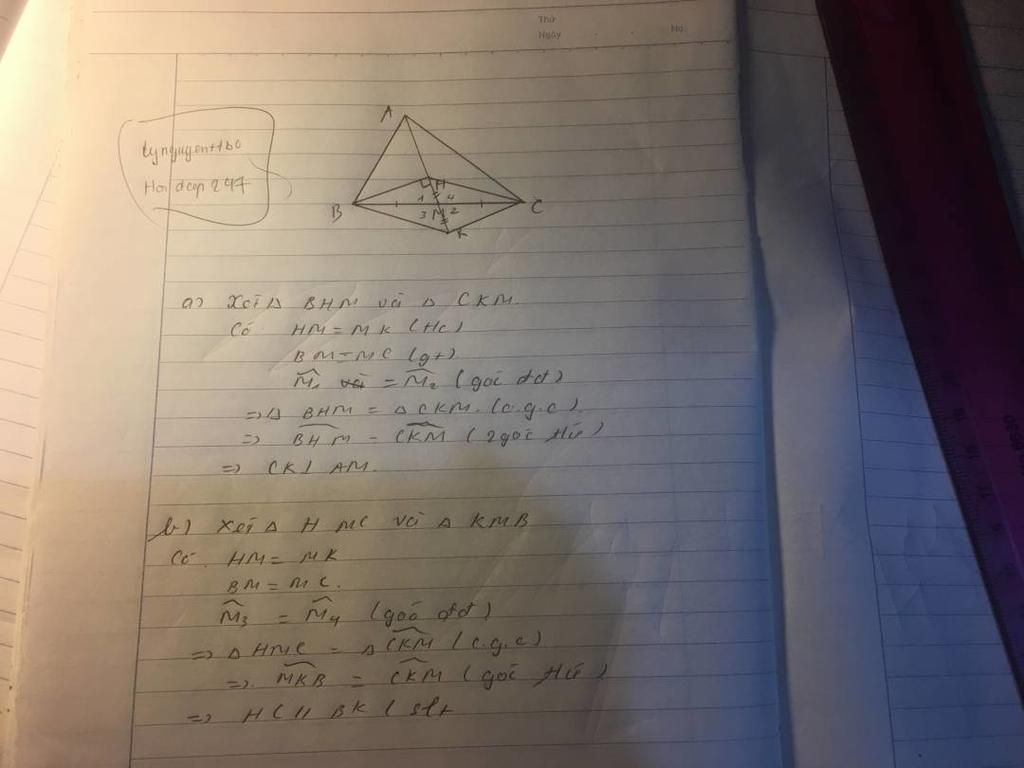 Thứ
Ngày
No.
A
H
B
C
1 4
3 M 2
K
a) Xét Δ BHM và Δ CKM.
Có HM = MK (Hc)
BM = MC (gt).
M̂₁ = M̂₂ (góc đđ)
=> Δ BHM = Δ CKM. (c.g.c)
=> BHM = CKM (2 góc Hứ)
=> CK ⊥ AM.
b) Xét Δ HMC và Δ KMB
Có HM = MK
BM = MC.
M̂₃ = M̂₄ (góc đđ)
=> Δ HMC = Δ CKM (c.g.c)
=> MKB = CKM (góc Hứ)
=> HC // BK ( slt